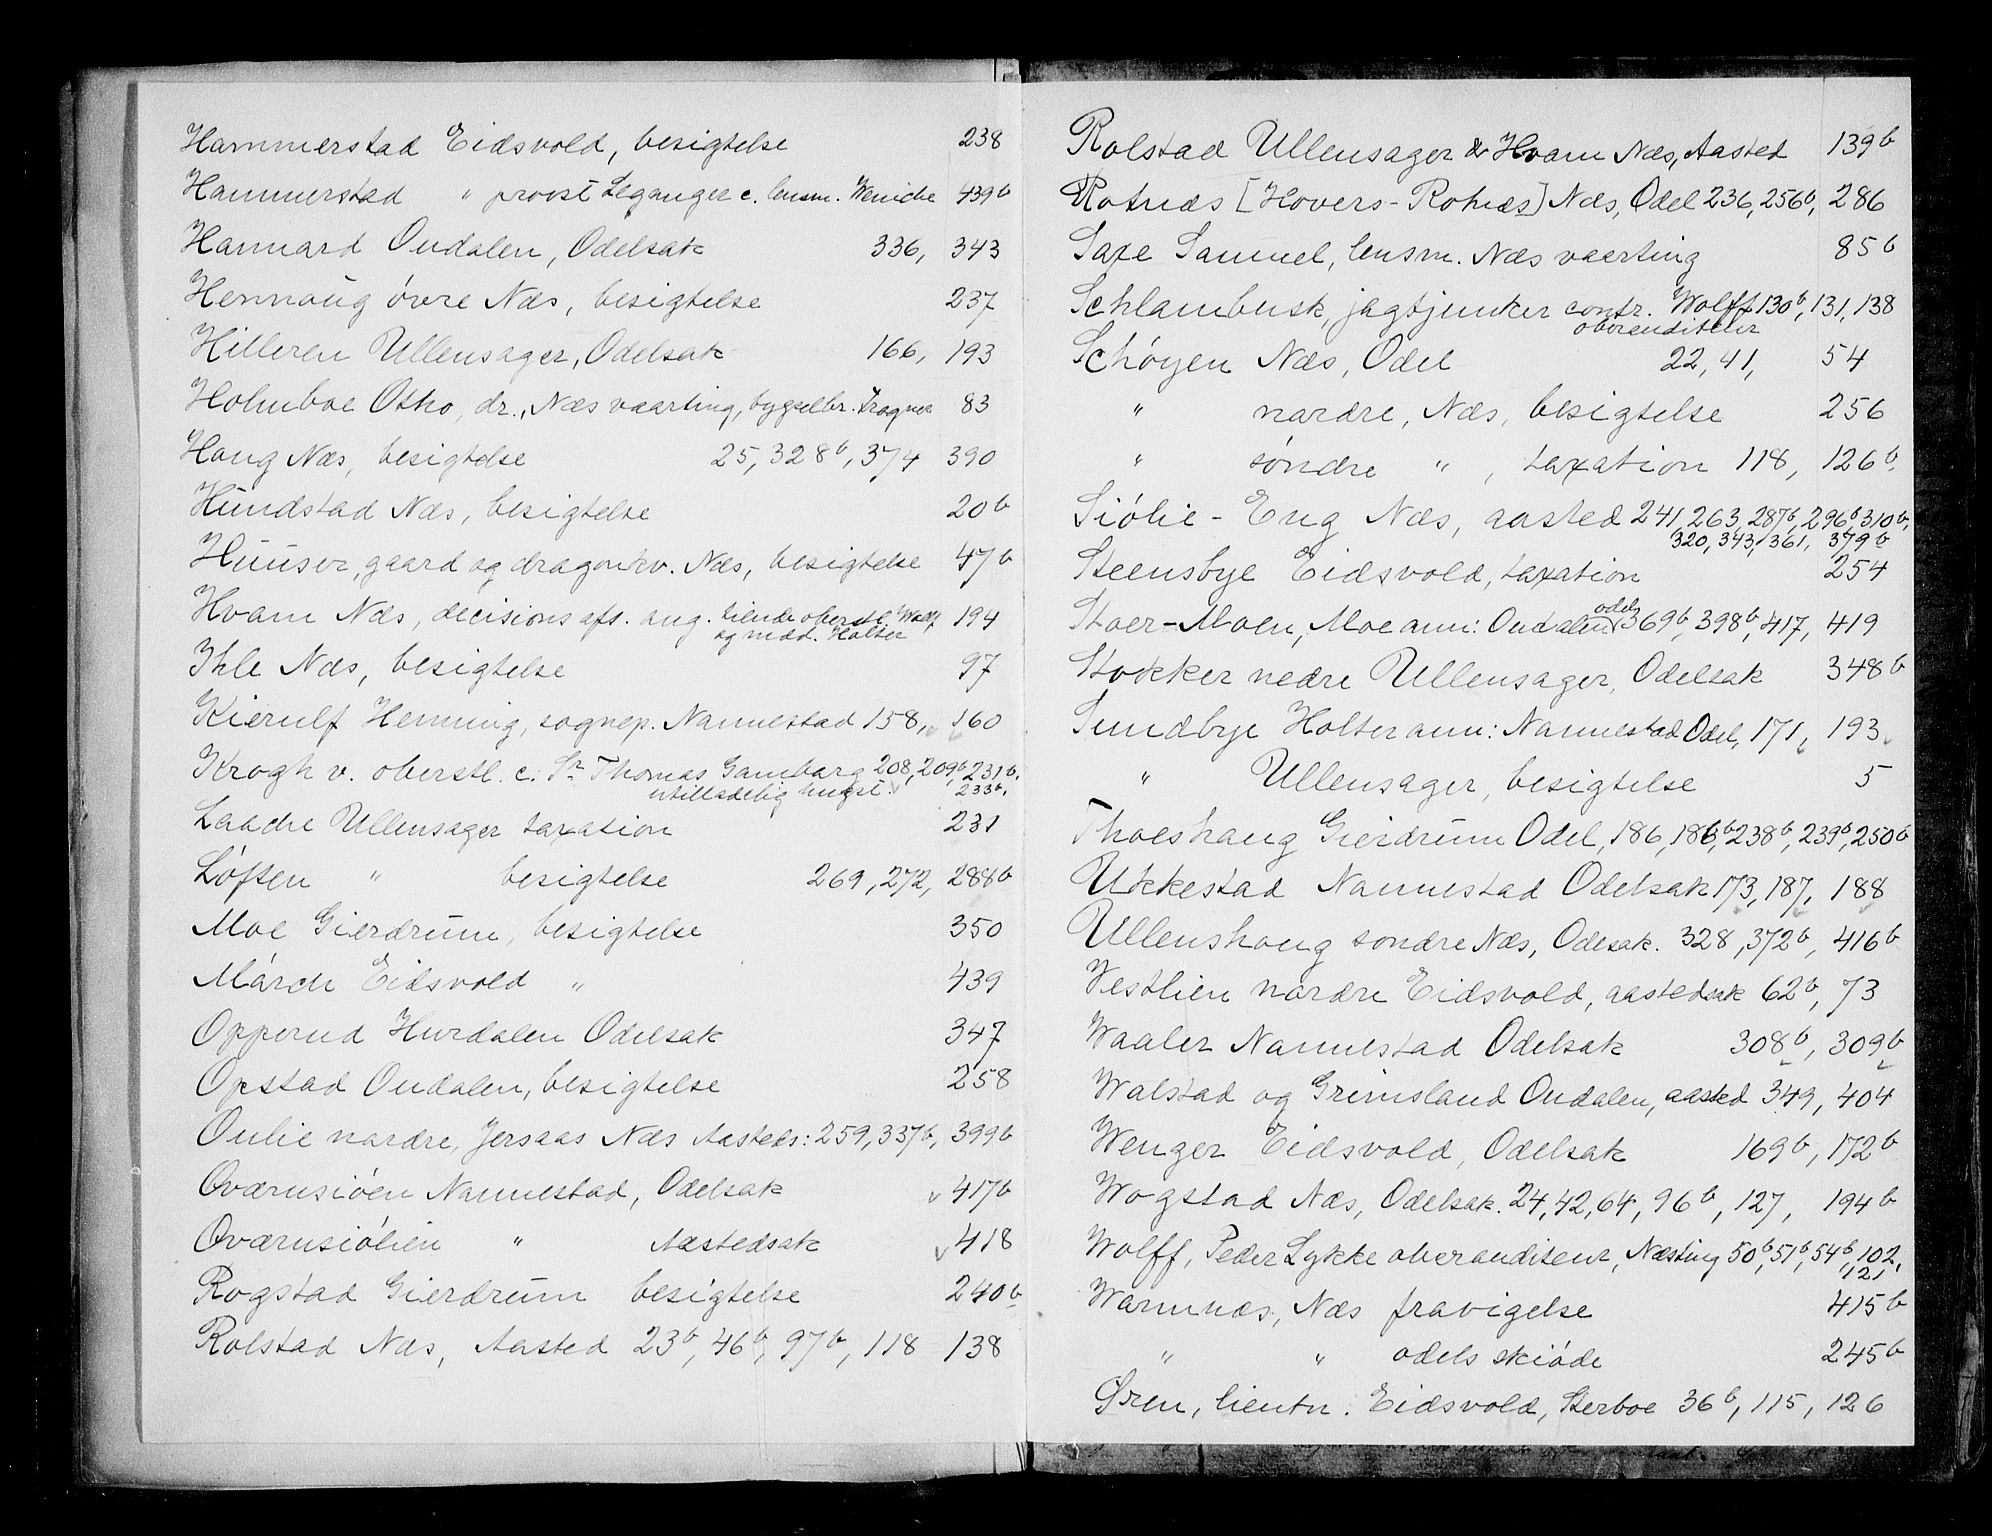 Hammerstad Eidsvold, besigtelse 238
Hammerstad " provst Leganger c. lensm. Weniche 439b
Hannard Oudalen, Odelsak 336, 343
Hennoug övre Næs, besigtelse 237
Hilleren Ullensager, Odelsak 166, 193
Holmboe Otho, dr., Næs vaarting, bygselbr. Frogner 83
Houg Næs, besigtelse 25, 328b, 374 390
Hundstad Næs, besigtelse 20b
Huuser, gaard og dragonkv. Næs, besigtelse 47b
Hvam Næs, decisions afs. ang. tiende oberstl. Wolf 194
og madd. Holter
Ihle Næs, besigtelse 97
Kierulf Henning, sognep. Nannestad 158, 160
Krogh v. oberstl. c. Sr Thomas Gamborg 208, 209b, 231b,
utilladelig hugst. 233b,
Laache Ullensager taxation 231
Löften " besigtelse 269, 272, 288b
Moe Gierdrum, besigtelse 350
Márch Eidsvold " 439
Opperud Hurdalen Odelsak 347
Opstad Oudalen, besigtelse 258
Oulie nordre, Jersaas Næs Aasteds: 259, 337b, 399b
Oværnsiöen Nannestad, Odelsak 417b
Oværnsiölien " Aastedsak 418
Rogstad Gierdrum besigtelse 240b
Rolstad Næs, Aasted 23b, 46b, 97b, 118 138
Rolstad Ullensager & Hvam Næs, Aasted 139b
Rotnæs [Hovers-Rotnæs] Næs, Odel 236, 256b, 286
Saxe Samuel, lensm. Næs vaarting 85b
Schlambusk, jagtjunker contr. Wolff 130b, 131, 138
oberauditeur
Schöyen Næs, Odel 22, 41, 54
" nordre, Næs, besigtelse 256
" söndre ", taxation 118, 126b,
Siölie-Eng Næs, aasted 241, 263, 287b, 296b, 310b,
320, 343, 361, 379b
Steensbye Eidsvold, taxation 254
Stoer-Moen, Moe ann: Oudalen odels 369b, 398b, 417, 419
Stokker nedre Ullensager, Odelsak 348b
Sundbye Holter ann: Nannestad Odel, 171, 193
" Ullensager, besigtelse 5
Thoeshaug Gierdrum Odel, 186, 186b, 238b, 239b, 250b
Ukkestad Nannestad Odelsak 173, 187, 188
Ullenshoug söndre Næs, Odelsak. 328, 372b, 416b
Vestlien nordre Eidsvold, aastedsak 62b, 73
Waaler Nannestad Odelsak 308b, 309b
Walstad og Grimsland Oudalen, aasted 349, 404
Wenger Eidsvold, Odelsak 169b, 172b
Wogstad Næs, Odelsak. 24, 42, 64, 96b, 127, 194b
Wolff, Peder Lykke oberauditeur, Næsting 50b, 51b, 54b, 102,
121
Warmnæs, Næs fravigelse 415b
" " odels skiöde 245b
Øren, lieutn. Eidsvold, Sterboe 36b, 115, 126